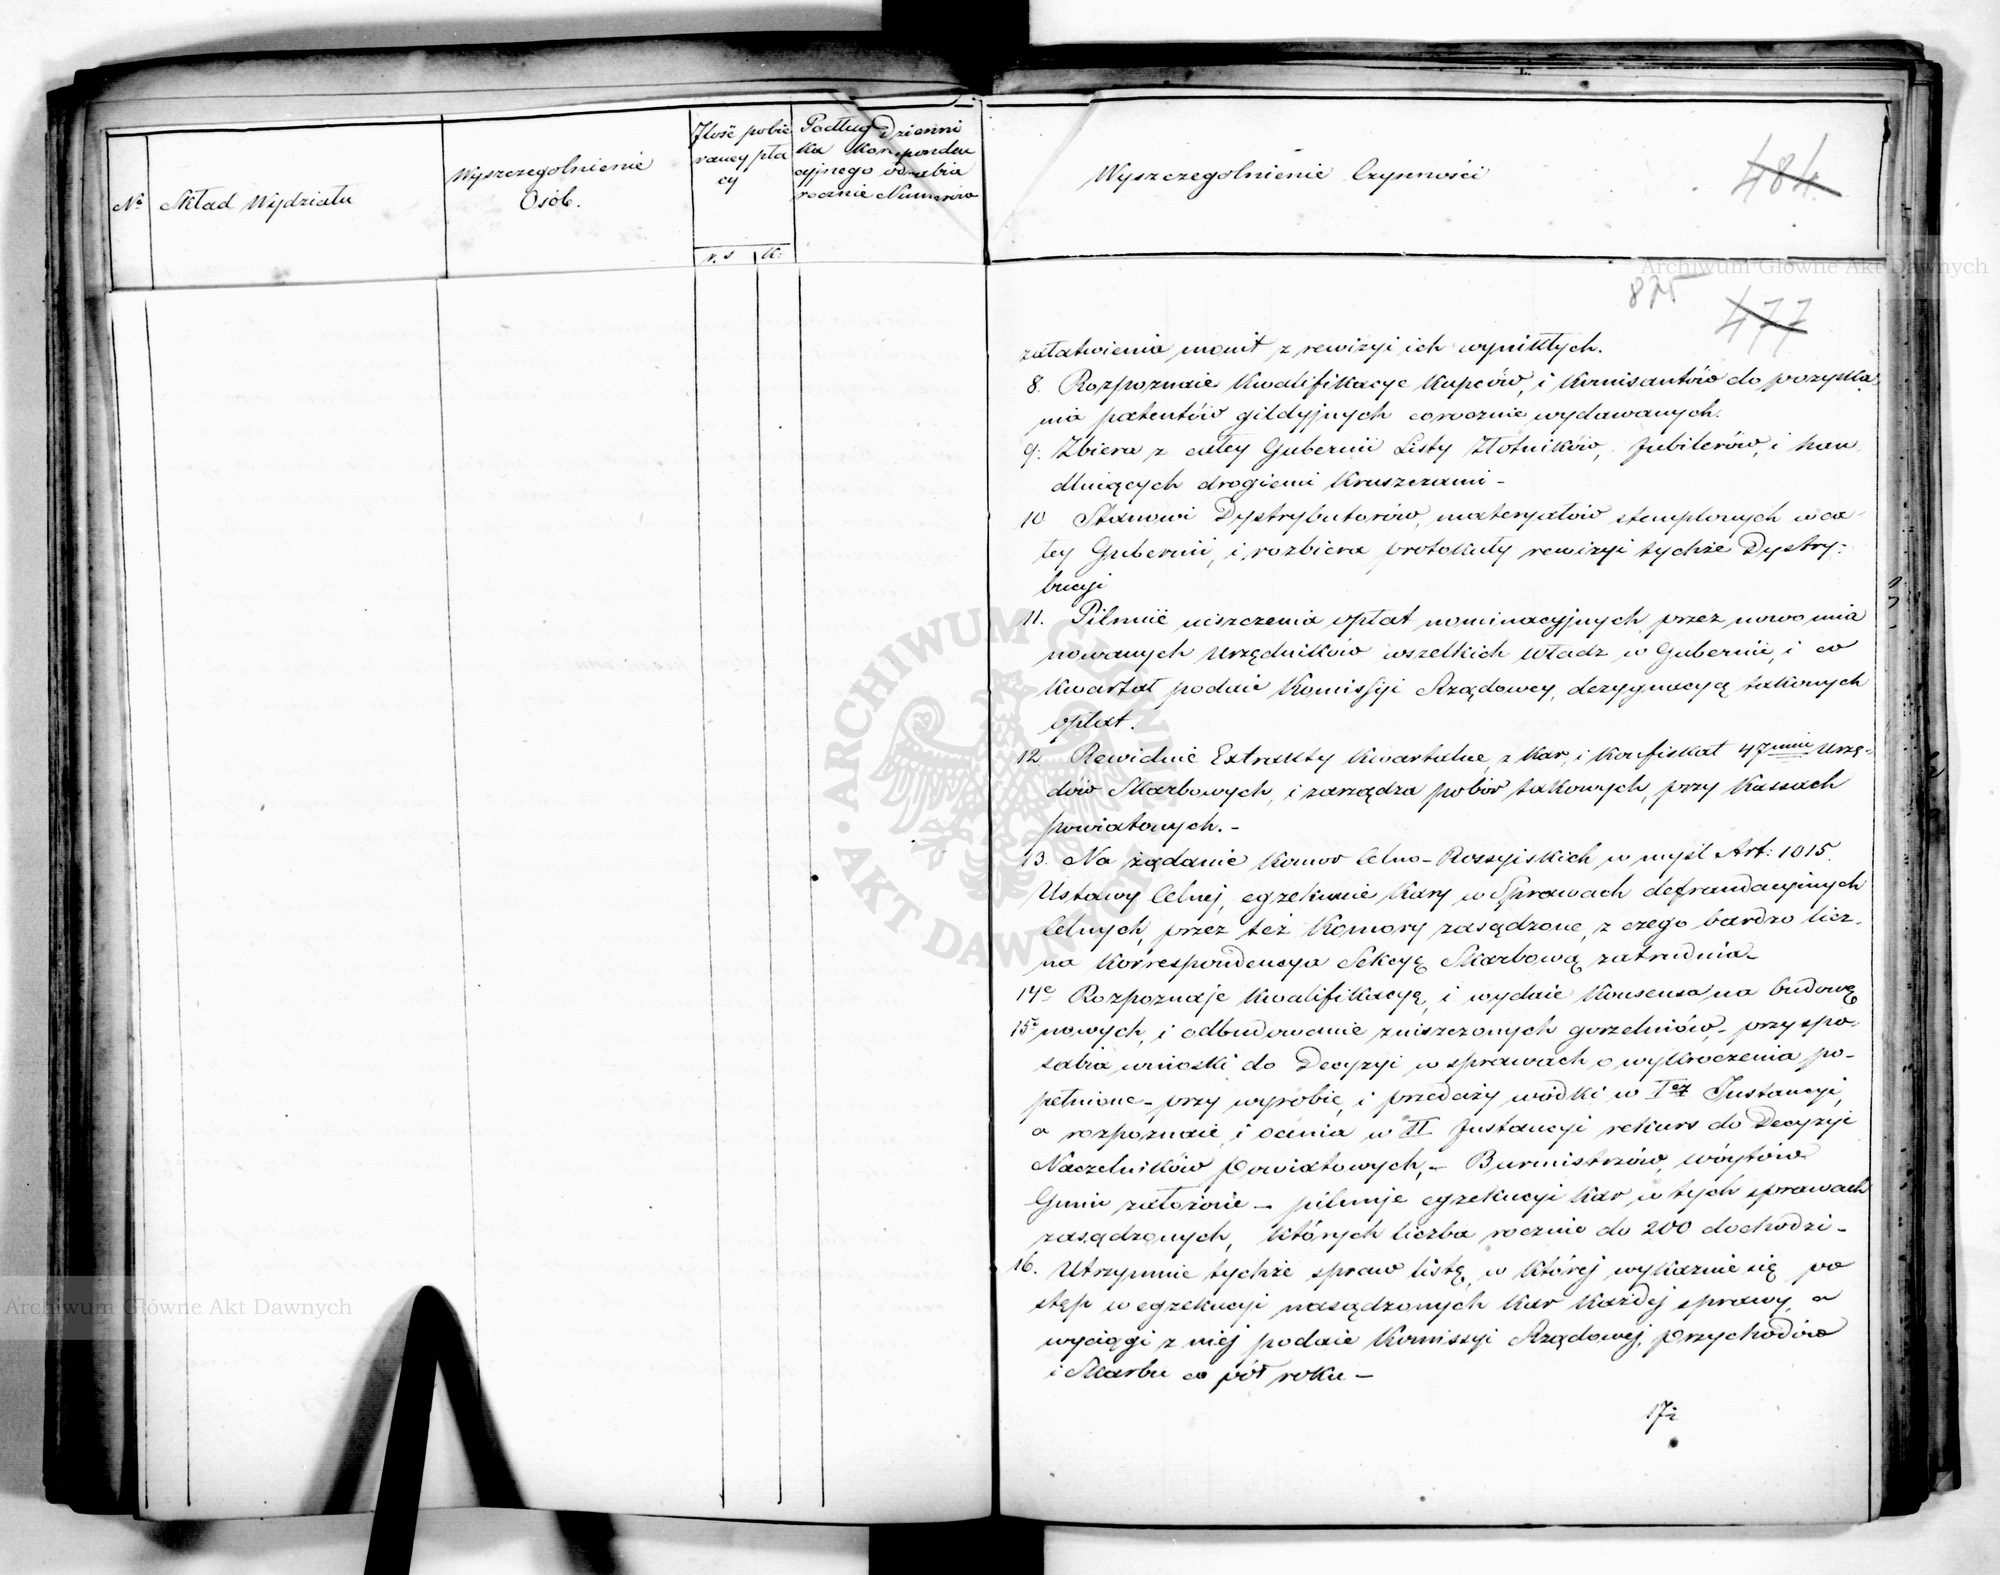 No
Skład Wydziału
Wyszczegolnienie
Osób.
Ilość pobie
raney pła
cy
r. s
k:
Podług Dzienni
ka Korrponden
cyjnego odrabia
rocznie Numerów
Wyszczegolnienie Czynności
484
Archiwum Główne Akt Dawnych
825
477
załatwienia monit z rewizyi ich wynikłych.
8. Rozpoznaie Kwalifikacye Kupców, i Komisantów do pozyska
nia patentów gildyjnych corocznie wydawanych.
9. Zbiera z całey Gubernii Listy Złotników, Jubilerów, i han
dluiących drogiemi Kruszczami -
10 Stanowi Dystrybutorów, materyałów stemplowych w ca-
łey Gubernii, i rozbiera protokuły rewizyi tychże Dystry-
bucyi
11. Pilnuie uiszczenia opłat nominacyjnych przez nowo mia
nowanych Urzędników wszelkich Władz w Gubernii, i co
Kwartał podaie Komissyi Rządowey, dezygnacyą takowych
opłat.
12 Rewiduie Extrakty Kwartalne, z Kar, i Konfiskat 47miu Urzę-
dów Skarbowych, i zarządza pobór takowych, przy Kassach
powiatowych. -
13. Na żądanie Komor Celno-Rossyiskich w myśl Art: 1015.
Ustawy Celnej, egzekwuie Kary w Sprawach defraudacyinych
Celnych, przez też Komory zasądzone, z czego bardzo licz-
na Korrespondencya Sekcyę Skarbową zatrudnia -
14e Rozpoznaje Kwalifikacyę, i wydaie Konsensa na budowę
15e nowych, i odbudowanie zniszczonych gorzelniów, - przyspo-
sabia wnioski do Decyzyi w sprawach o wykroczenia po-
pełnione - przy wyrobie, i przedaży wódki w Iej Instancyi,
a rozpoznaie, i ocenia w II Instancyi rekurs do Decyzyi
Naczelników Powiatowych, - Burmistrzów, wóytów
Gmin założone - pilnuje egzekucyi Kar w tych sprawach
zasądzonych, których liczba rocznie do 200 dochodzi -
16. Utrzymuie tychże spraw listę, w której wykazuie się po
stęp w egzekucyi nasądzonych Kar Każdej sprawy, a
wyciągi z niéj podaie Komissyi Rządowej, Przychodów
i Skarbu co pół roku -
17e
ARCHIWUM GŁÓWNE AKT DAWNYCH
Archiwum Główne Akt Dawnych